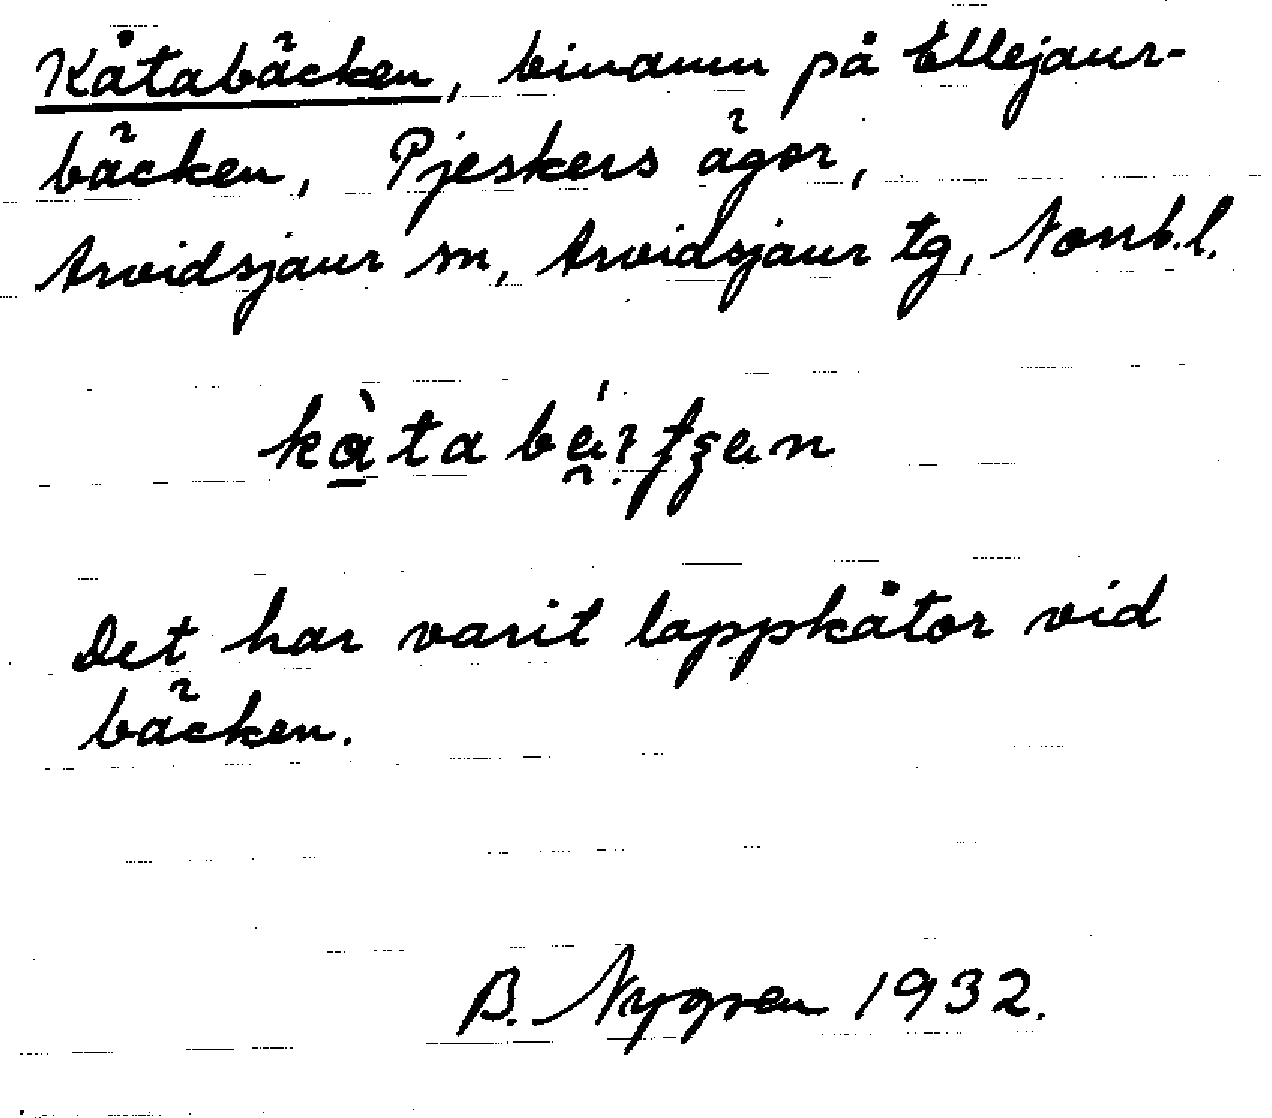 Kåtabäcken, binamn på Ellejaur-
bäcken, Pjeskers ägor,
Arvidsjaur sn, Arvidsjaur tg, Norrb.l.
Det har varit lappkåtor vid
bäcken.
B. Nygren 1932.